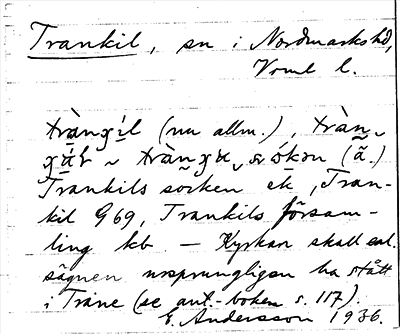 Trankil, sn i Nordmarks hd,
Vrml l.
(nu allm.),
sókən (ã.)
Trankils socken ek, Tran-
kil G 69, Trankils försam-
ling kb — Kyrkan skall enl.
sägnen ursprungligen ha stått
i Träne (se ant.-boken s. 117).
E. Andersson 1936.